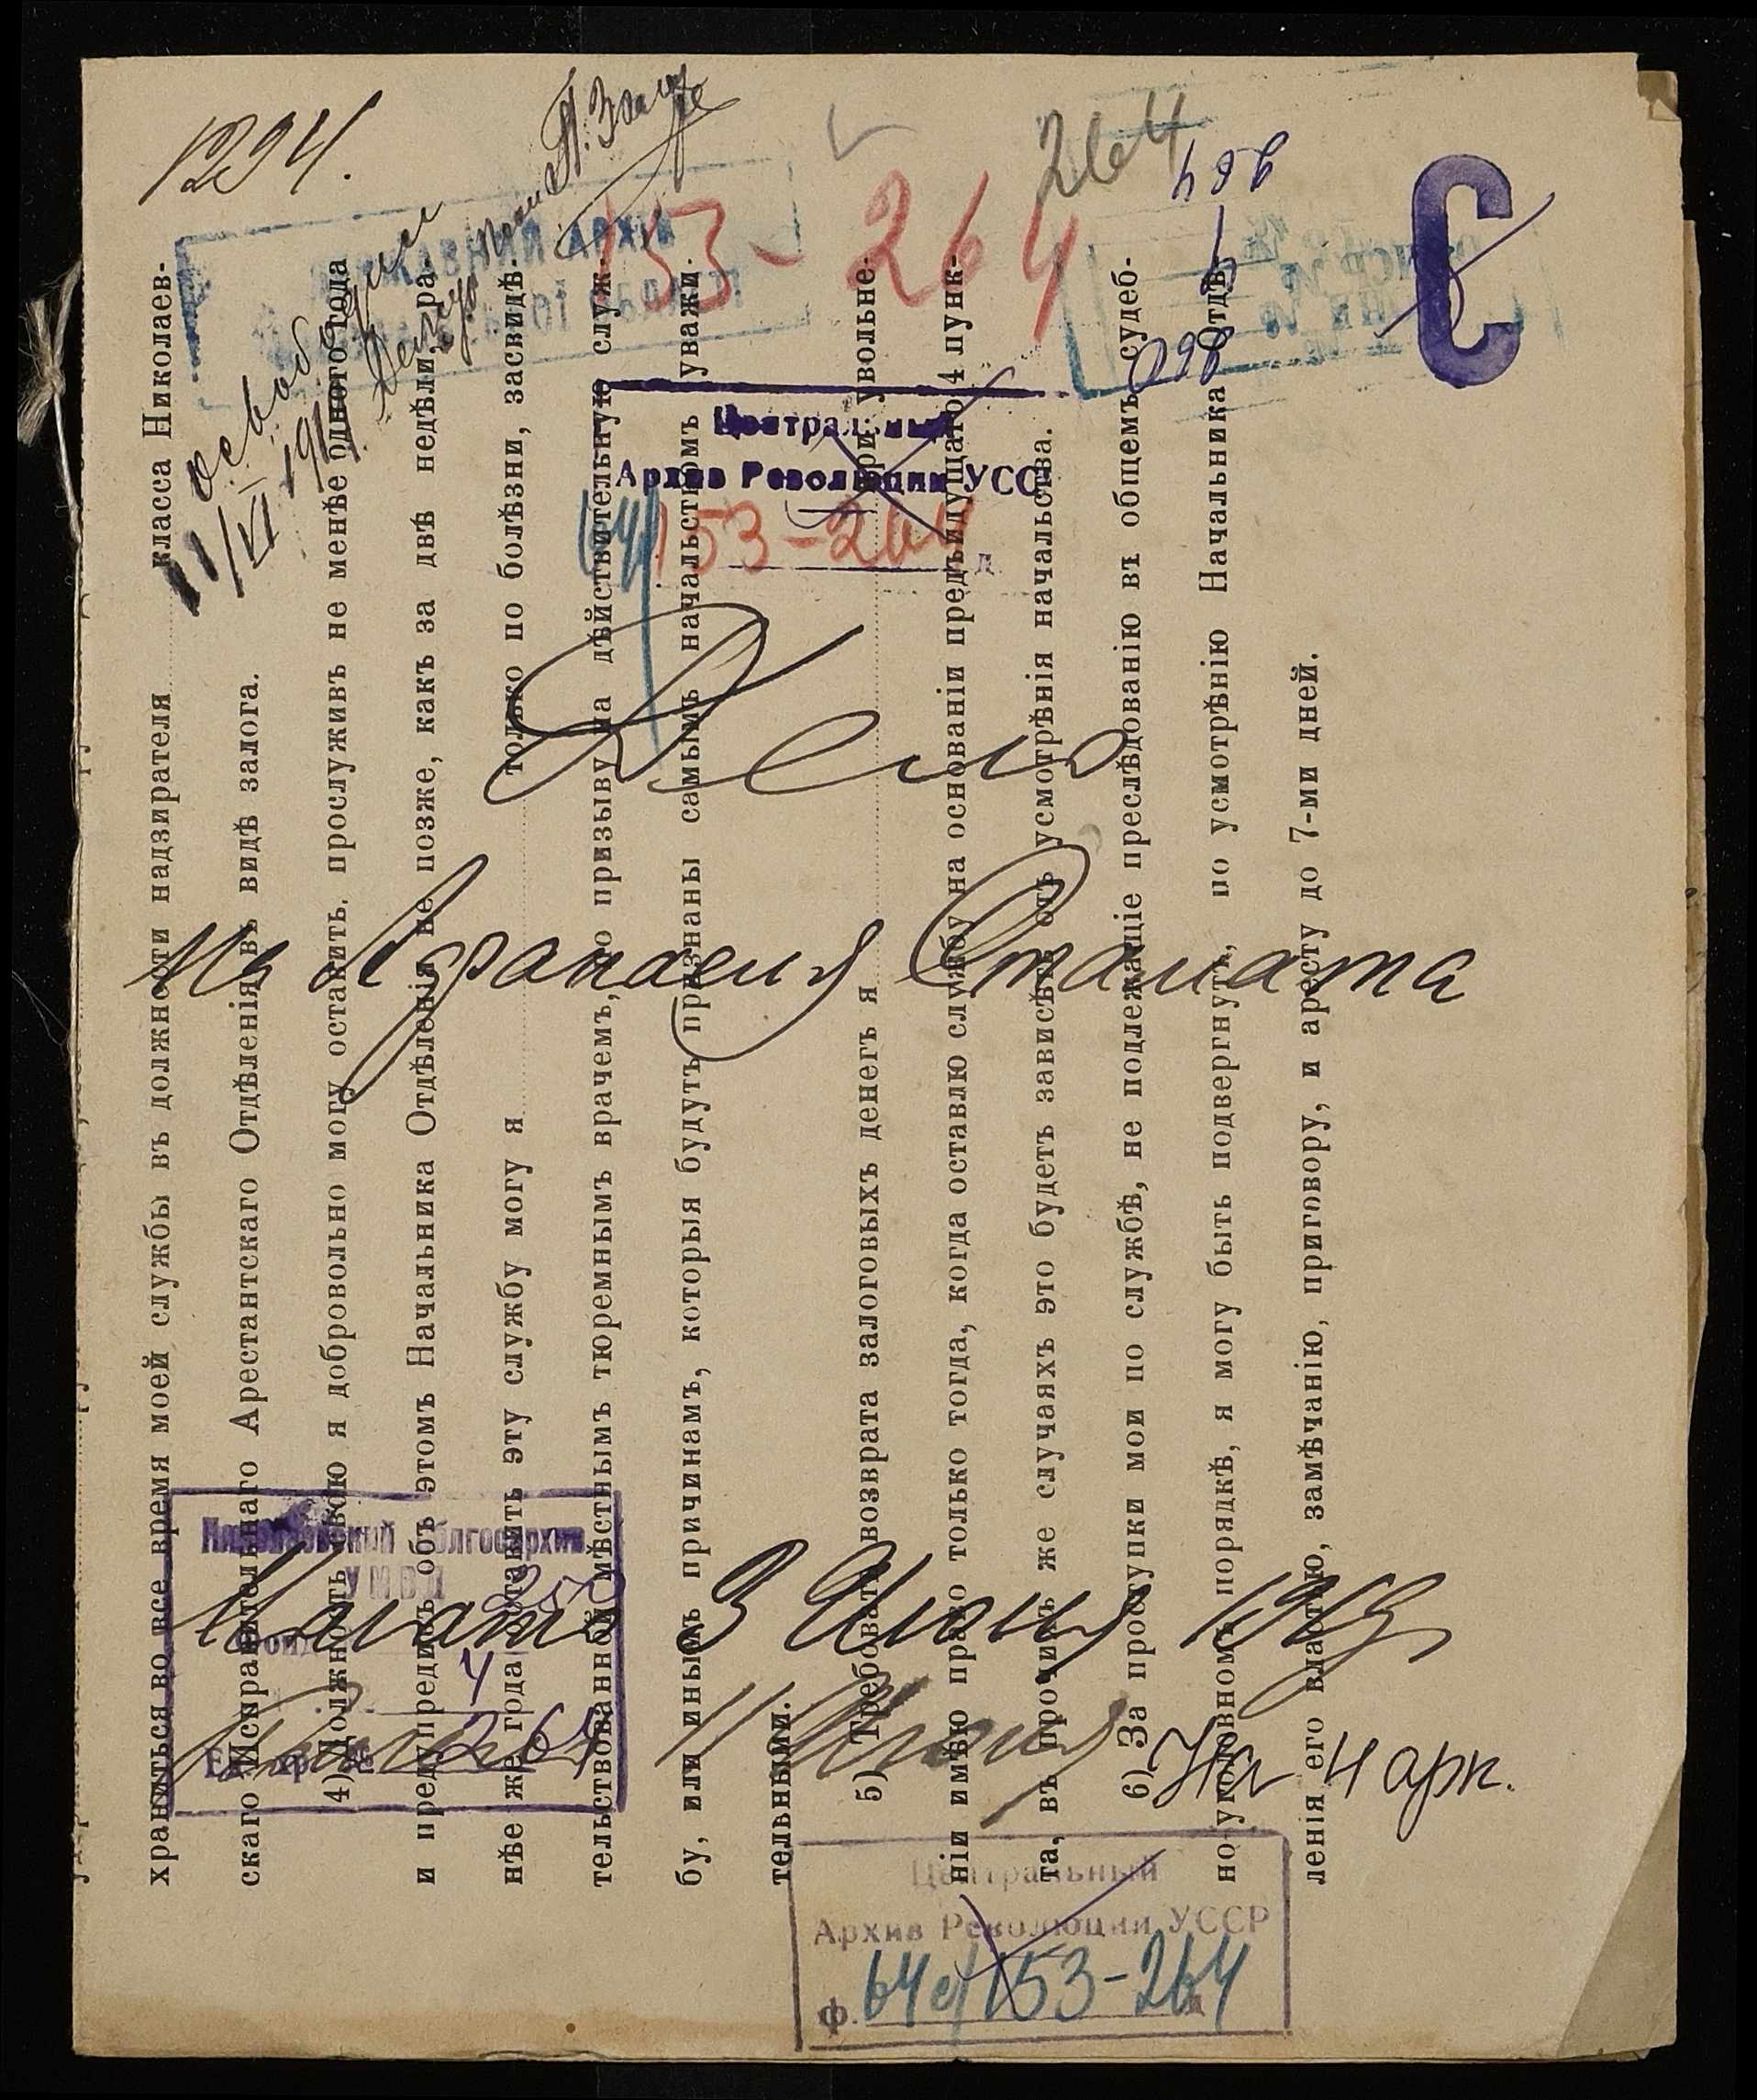 1294.
264
264
1
260
С
11/VI 191
освобод
ДЕРЖАВНИЙ АРХІВ
153-264
Центральный
Архив Революции УССР
153-264
Дело
Из Афанасия Стамата
Начато 3 Июня 1913
11 Июня
На 4 арк.
Николаевский Облгосархив
УМВД
Фонд 250
4
Ед. хр. № 264
Центральный
Архив Революции УССР
Ф. 64с/153-264
храниться во все время моей службы въ должности надзирателя класса Николаев-
скаго Исправительнаго Арестантскаго Отдѣленія въ видѣ залога.
4) Должность свою я добровольно могу оставить, прослуживъ не менѣе одного года
и предупредивъ объ этомъ Начальника Отдѣленія не позже, какъ за двѣ недѣли, ра-
нѣе же года оставить эту службу могу я только по болѣзни, засвидѣ-
тельствованной мѣстнымъ тюремнымъ врачемъ, по призыву на дѣйствительную служ-
бу, или инымъ причинамъ, которыя будутъ признаны самымъ начальствомъ уважи-
тельными.
5) Требовать возврата залоговыхъ денегъ я при увольне-
ніи имѣю право только тогда, когда оставлю службу на основаніи предъидущаго 4 пунк-
та, въ прочихъ же случаяхъ это будетъ зависѣть отъ усмотрѣнія начальства.
6) За проступки мои по службѣ, не подлежащіе преслѣдованію въ общемъ судеб-
но-уголовномъ порядкѣ, я могу быть подвергнутъ, по усмотрѣнію Начальника Отдѣ-
ленія его властью, замѣчанію, приговору, и аресту до 7-ми дней.